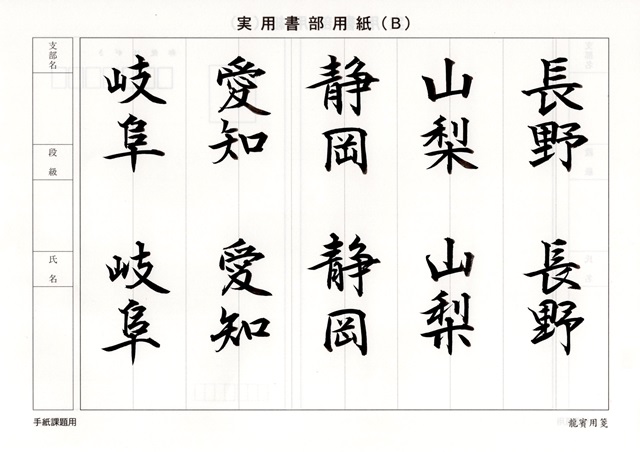 実用書部用紙(B)
長野
長野
山梨
山梨
静岡
静岡
愛知
愛知
岐阜
岐阜
支部名
段級
氏名
手紙課題用
龍賓用箋